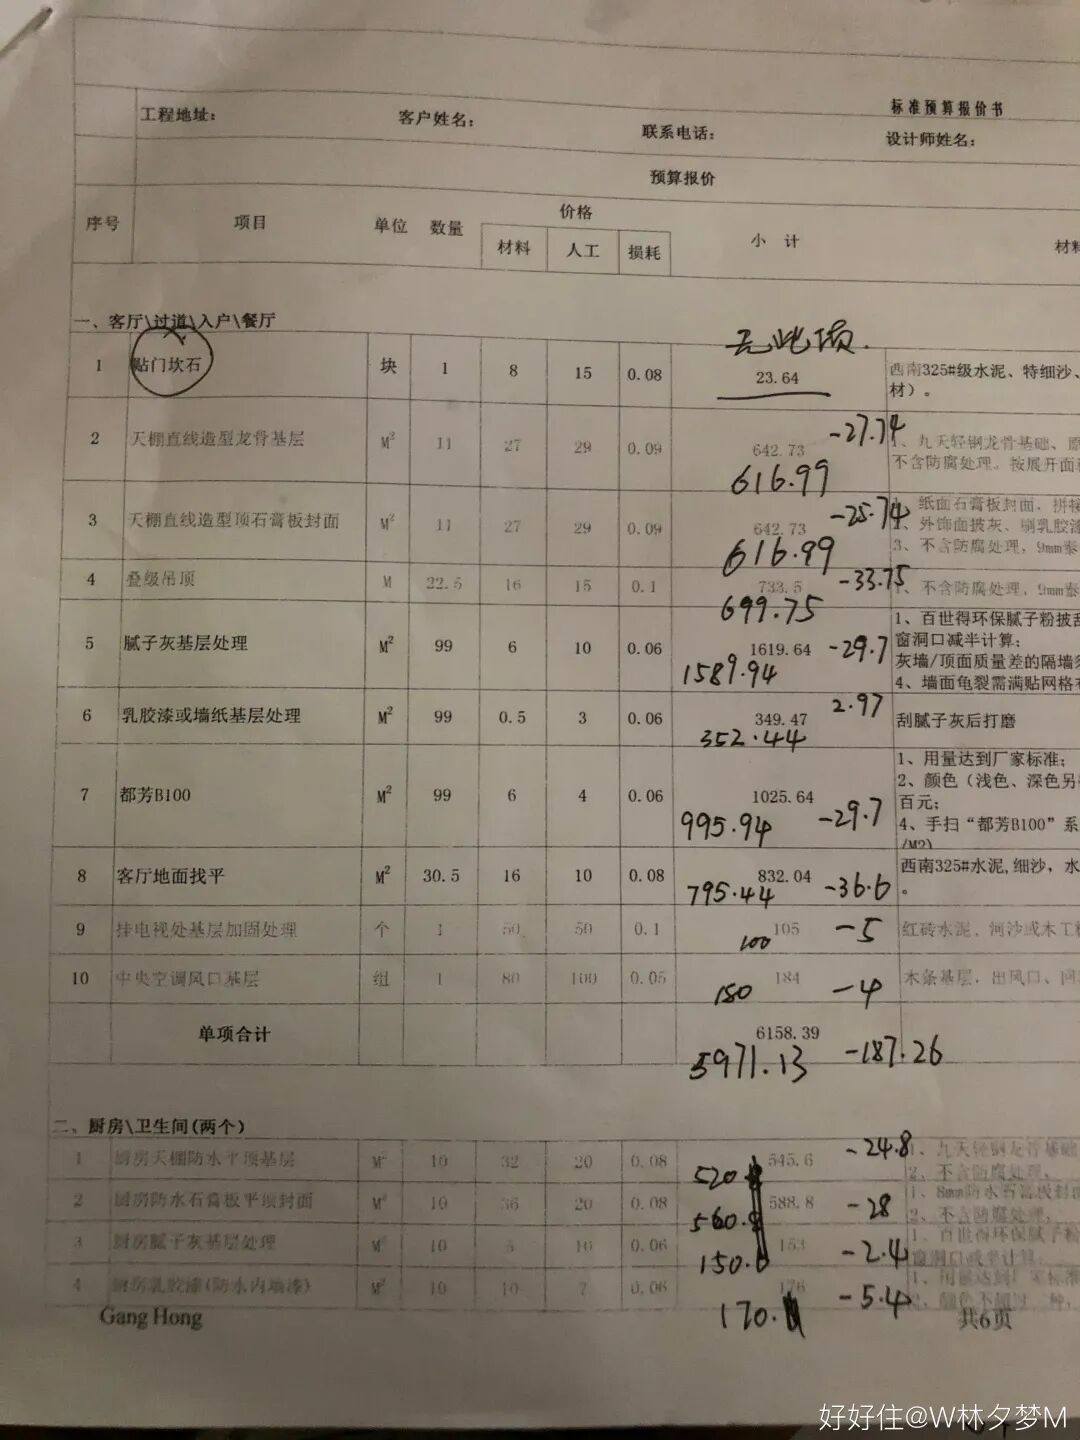 标准预算报价书
工程地址: 客户姓名: 联系电话: 设计师姓名:
预算报价
序号 项目 单位 数量 价格 小 计 材料
材料 人工 损耗
一、客厅\过道\入户\餐厅
无此项.
1 贴门坎石 块 1 8 15 0.08 23.64 西南325#级水泥、特细沙、
材）。
2 天棚直线造型龙骨基层 M² 11 27 29 0.09 642.73 -27.74 1、九天轻钢龙骨基础、原
616.99 不含防腐处理。按展开面
3 天棚直线造型顶石膏板封面 M² 11 27 29 0.09 642.73 -25.74 纸面石膏板封面，拼接
616.99 、外饰面披灰、喇乳胶漆
3、不含防腐处理，9mm泰
4 叠级吊顶 M 22.5 16 15 0.1 733.5 -33.75 1、不含防腐处理，9mm泰
699.75
5 腻子灰基层处理 M² 99 6 10 0.06 1619.64 -29.7 1、百世得环保腻子粉披刮
1589.94 窗洞口减半计算;
灰墙/顶面质量差的隔墙须
4、墙面龟裂需满贴网格布
6 乳胶漆或墙纸基层处理 M² 99 0.5 3 0.06 349.47 2.97 刮腻子灰后打磨
352.44
7 都芳B100 M² 99 6 4 0.06 1025.64 1、用量达到厂家标准;
995.94 -29.7 2、颜色（浅色、深色另
百元;
4、手扫“都芳B100”系
/M2)
8 客厅地面找平 M² 30.5 16 10 0.08 832.04 西南325#水泥,细沙，水
795.44 -36.6 。
9 挂电视处基层加固处理 个 1 50 50 0.1 105 -5 红砖水泥、河沙或木工
100
10 中央空调风口基层 组 1 80 100 0.05 184 木条基层，出风口、回
180 -4
单项合计 6158.39
5971.13 -187.26
二、厨房\卫生间(两个)
1 厨房天棚防水平顶基层 M² 10 32 20 0.08 545.6 -24.8 1、九天轻钢龙骨基础
520. 2、不含防腐处理，
2 厨房防水石膏板平顶封面 M² 10 36 20 0.08 588.8 -28 1、8mm防水石膏板封面
560. 2、不含防腐处理，
3 厨房腻子灰基层处理 M² 10 5 10 0.06 153 -2.4 1、百世得环保腻子粉
150.6 窗洞口减半计算;
4 厨房乳胶漆(防水内墙漆) M² 10 10 7 0.06 176 -5.4 1、用量达到厂家标准
170. 2、颜色不超过二种，
Gang Hong 共6页
好好住@W林夕梦M